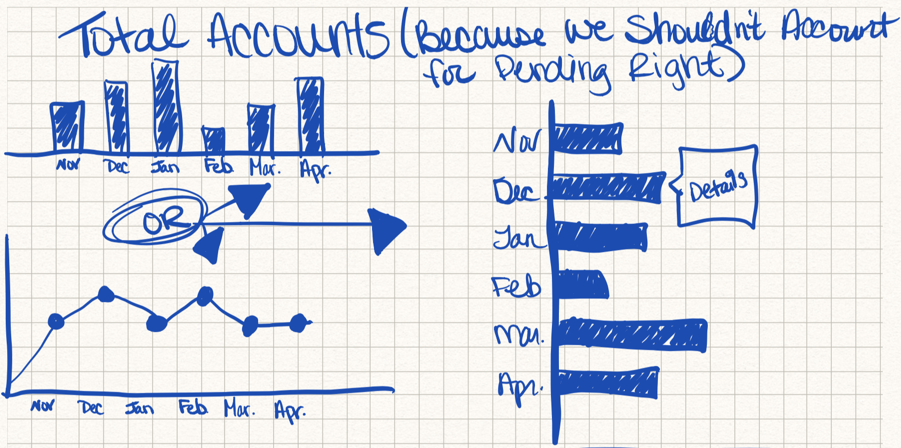 Total Accounts (Because we Shouldn't Account
for Pending Right)
Nov Dec Jan Feb Mar. Apr.
OR
Nov Dec Jan Feb Mar. Apr.
Nov
Dec
Details
Jan
Feb
Mar.
Apr.